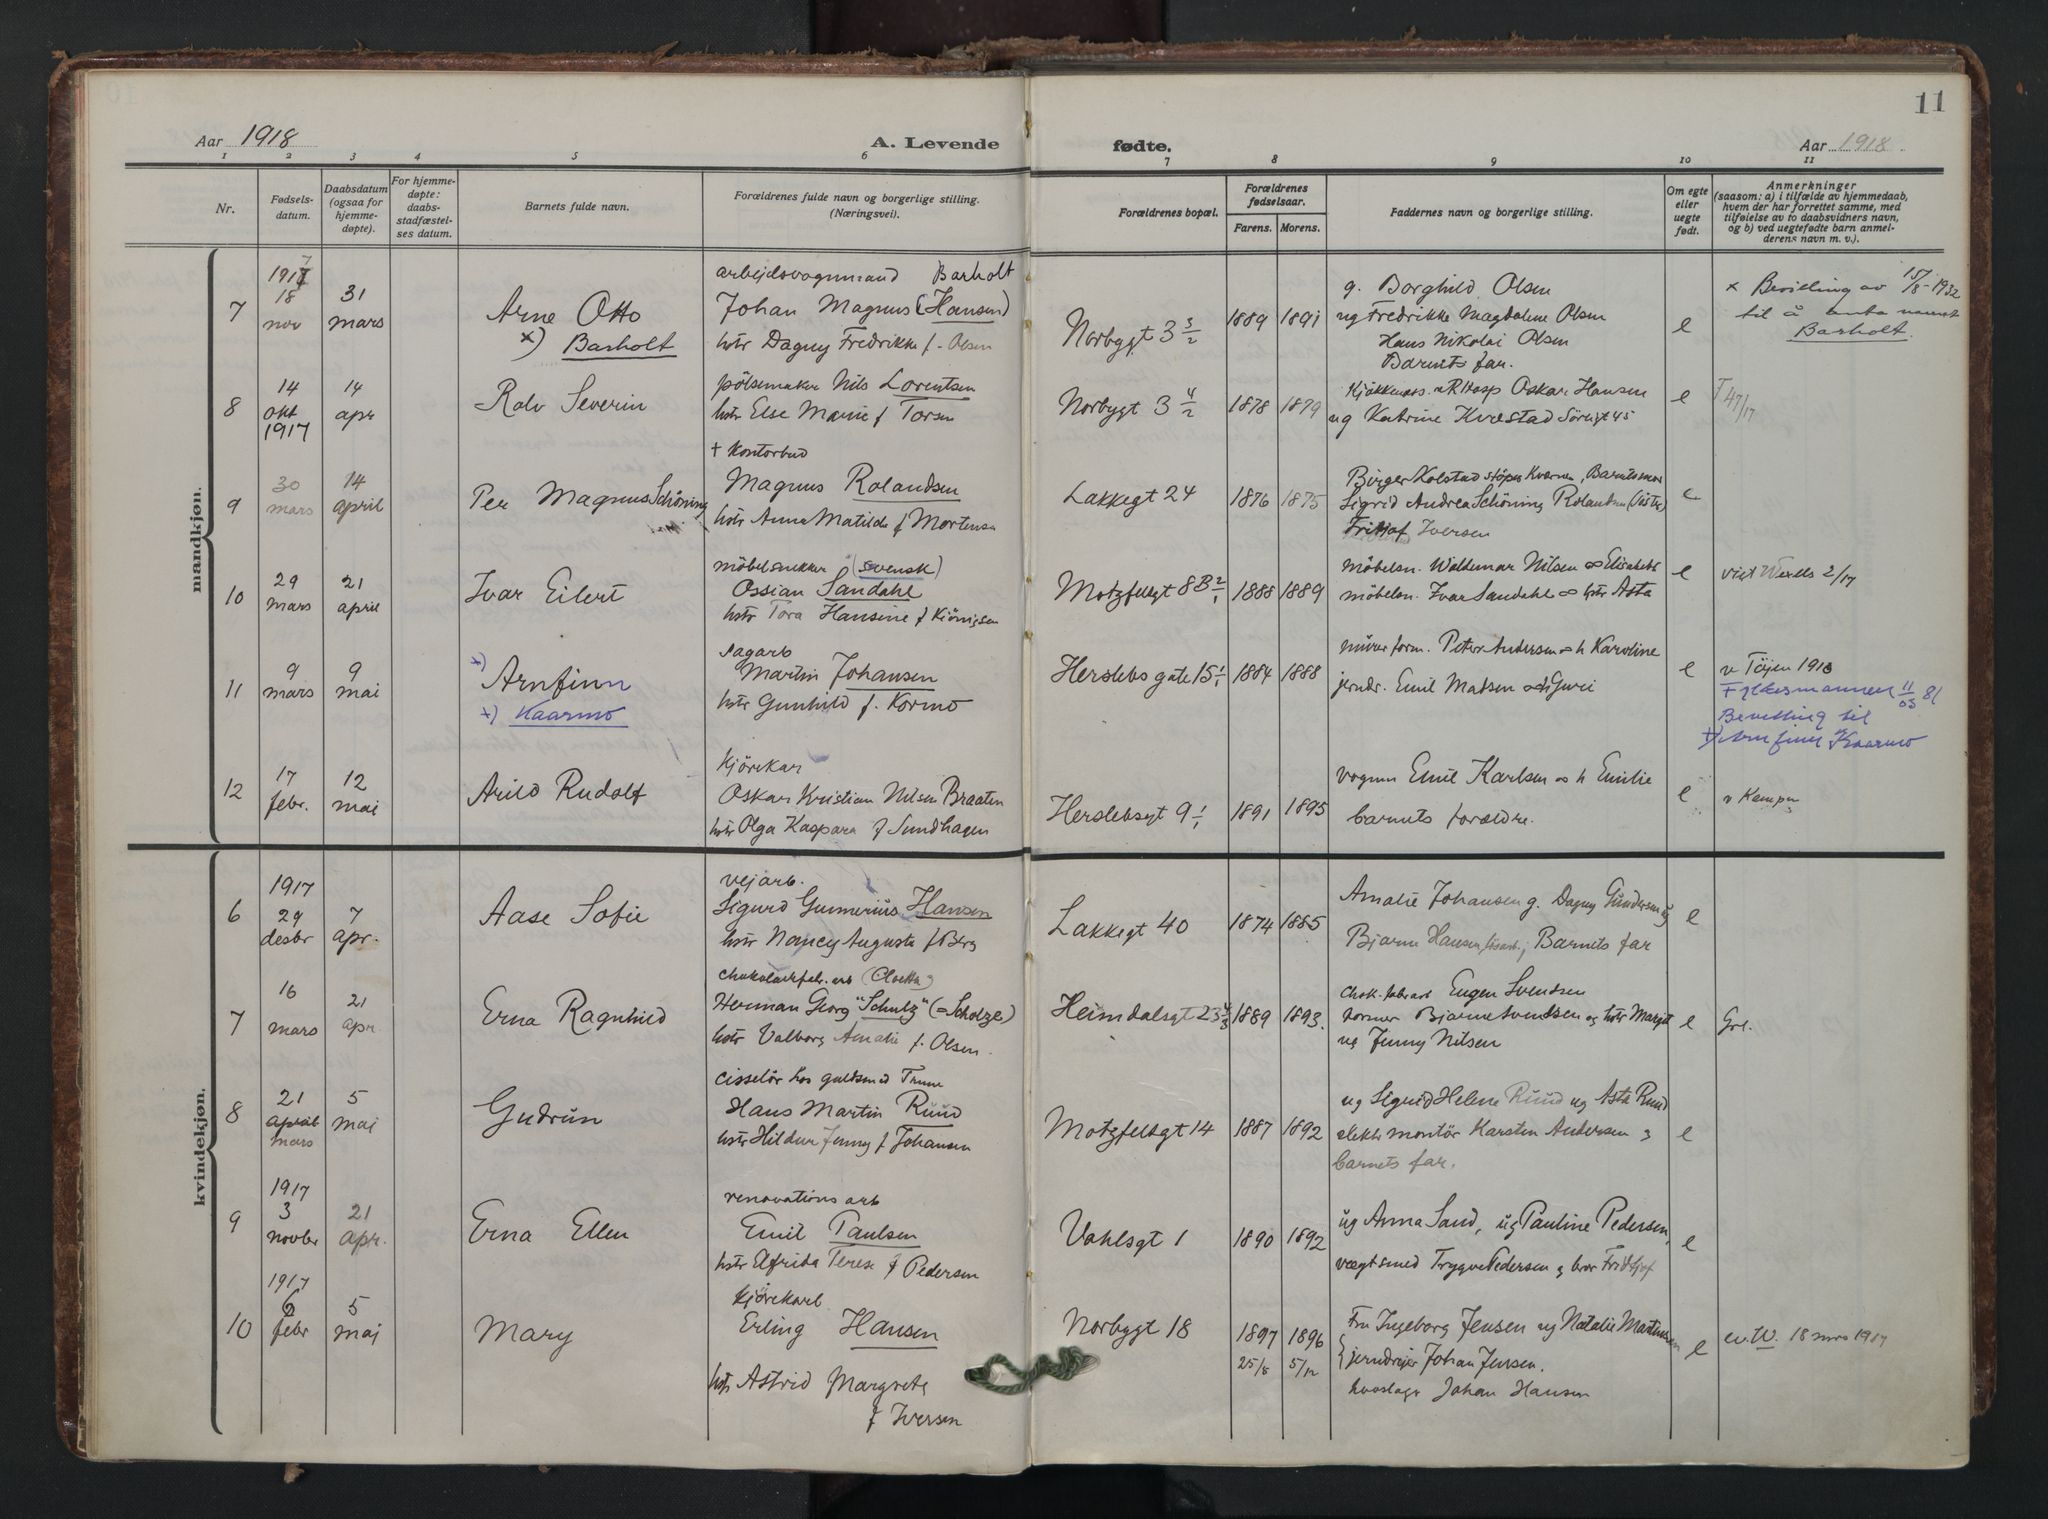 11
Aar 1918 A. Levende fødte. Aar 1918
1 2 3 4 5 6 7 8 9 10 11
Nr.
Fødsels-
datum.
Daabsdatum
(ogsaa for
hjemme-
døpte).
For hjemme-
døpte:
daabs-
stadfæstel-
ses datum.
Barnets fulde navn.
Forældrenes fulde navn og borgerlige stilling.
(Næringsvei).
Forældrenes bopæl.
Forældrenes
fødselsaar.
Farens. Morens.
Faddernes navn og borgerlige stilling.
Om egte
eller
uegte
født.
Anmerkninger
(saasom: a) i tilfælde av hjemmedaab,
hvem der har forrettet samme, med
tilføielse av to daabsvidners navn,
og b) ved uegtefødte barn anmel-
derens navn m. v.).
mandkjøn.
7
1917
18
nov
31
mars
Arne Otto
x) Barholt
arbejdsvognmand Barholt
Johan Magnus (Hansen)
hstr Dagny Fredrikke f. Olsen
Norbygt 3 3/2
1889 1891
g. Borghild Olsen
ug Fredrikke Magdalene Olsen
Hans Nikolai Olsen
Barnets far.
e
x Bevilling av 15/8-1932
til å anta navnet
Barholt.
8
14
okt
1917
14
apr
Rolv Severin
pölsemaker Nils Lorentsen
hstr Else Marie f Torsen
Norbygt 3 4/2
1878 1879
Oskar Hansen
ug Katrine Kvestad Sörligt 45
e
T 47/17
9
30
mars
14
april
Per Magnus Schöning
+ Kontorbud
Magnus Rolandsen
hstr Anna Matilde f Mortensen
Lakkegt 24
1876 1875
Birger Kolstad støper Kværner, Barnets mor
Sigrid Andrea Schöning Rolandsen (söster)
Frithof Iversen
e
10
29
mars
21
april
Ivar Eilert
möbelsnekker (svensk)
Ossian Sandahl
hstr Tora Hansine f Kjönigsen
Motzfeltgt 8B 2/1
1888 1889
möbelsn. Waldemar Nilsen ∞ Elisabeth
möbelsn. Ivar Sandahl ∞ hstr Asta
e
viet Wexels 2/17
11
9
mars
9
mai
x) Arnfinn
x) Kaarmo
sagarb
Martin Johansen
hstr Gunhild f. Kormo
Herslebs gate 15 1/1
1884 1888
mürer form. Peter Andersen ∞ h Karoline
jerndr. Emil Madsen ∞ h Guri
e
v Töjen 1913
Fylkesmannen 11/03 81
Bevilling til
x) Arnfinn Kaarmo
12
17
febr.
12
mai
Arild Rudolf
kjörekar
Oskar Kristian Nilsen Braaten
hstr Olga Kaspara f Sundhagen
Herslebsgt 9 1/1
1891 1895
vognm Emil Karlsen ∞ h Emilie
barnets forældre.
e
v Kampen
kvindekjøn.
6
1917
29
desbr
7
apr.
Aase Sofie
vejarb.
Sigurd Gunnerius Hansen
hstr Nancy Augusta f Berg
Lakkegt 40
1874 1885
Amalie Johansen g. Dagny Gundersen ug
Bjarne Hansen, Barnets far
e
7
16
mars
21
apr.
Erna Ragnhild
chokoladefabr. arb (Cloetta)
Herman Georg "Schulz" (=Scholze)
hstr Valborg Amalie f. Olsen
Heimdalsgt 23 4/3
1889 1893.
chok. fabrarb Eugen Svendsen
former Bjarne Svendsen og hstr Margit
ug Jenny Nilsen
e
Grl.
8
21
april
mars
5
mai
Gudrün
cisselör hos guldsmed
Hans Martin Ruud
hstr Hildur Jenny f Johansen
Motzfeltgt 14
1887 1892
ug Sigrid Helene Ruud ug Asta Ruud
elektr montör Karsten Andersen og
barnets far.
e
9
1917
3
novbr
21
apr.
Erna Ellen
renovations arb
Emil Paulsen
hstr Elfrida Terese f Pedersen
Vahlsgt 1
1890 1892
ug Anna Sand, ug Pauline Pedersen,
vægtsmed Trygve Pedersen og bror Fridtjof
e
10
1917
6
febr
5
mai
Mary
kjörekarl
Erling Hansen
hstr Astrid Margrete
f Iversen
Norbygt 18
1897 1896
25/8 5/12
Fru Ingeborg Jensen ug Natalie Martinsen
jerndrejer Johan Jensen.
hovslager Johan Hansen
e
ev. W. 18 mrs 1917